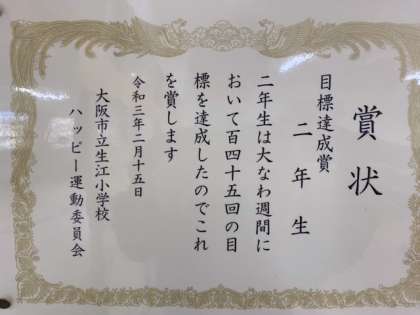 賞状
目標達成賞
二年生
二年生は大なわ週間に
おいて百四十五回の目
標を達成したのでこれ
を賞します
令和三年二月十五日
大阪市立生江小学校
ハッピー運動委員会